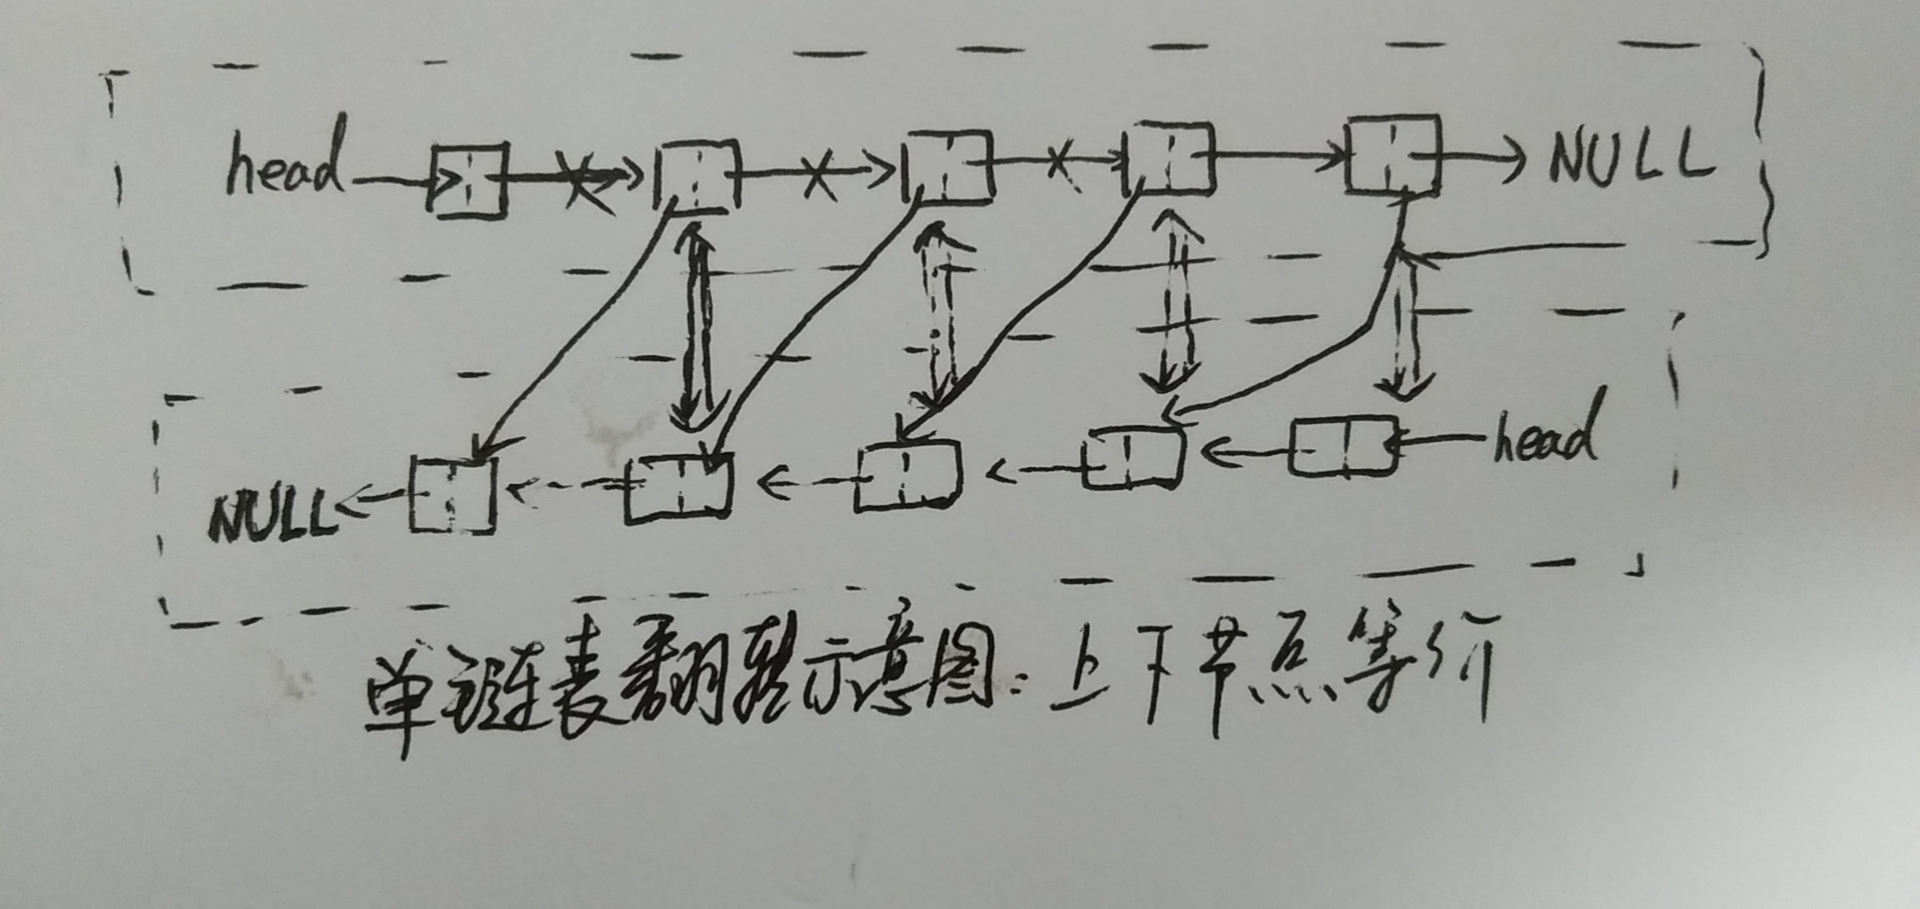 head NULL
NULL head
单链表翻转示意图：上下节点等价